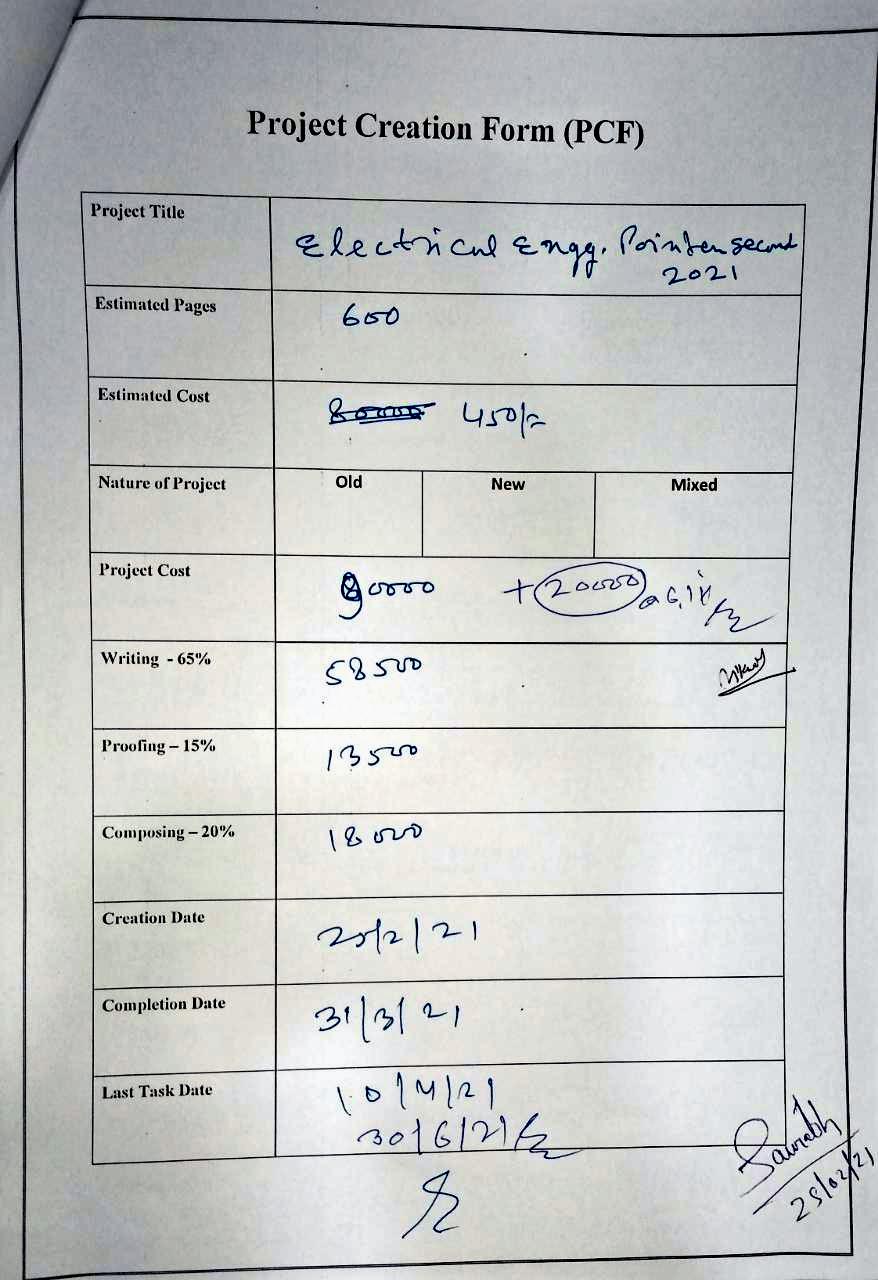 Project Creation Form (PCF)
Project Title
Electrical Engg. Pointer second
2021
Estimated Pages
600
Estimated Cost
80000 450/=
Nature of Project Old New Mixed
Project Cost
90000 + 20000
Writing - 65%
58500
Proofing – 15%
13500
Composing – 20%
18000
Creation Date
25/2/21
Completion Date
31/3/21
Last Task Date
10/4/21
30/6/21
Saurabh
25/02/21